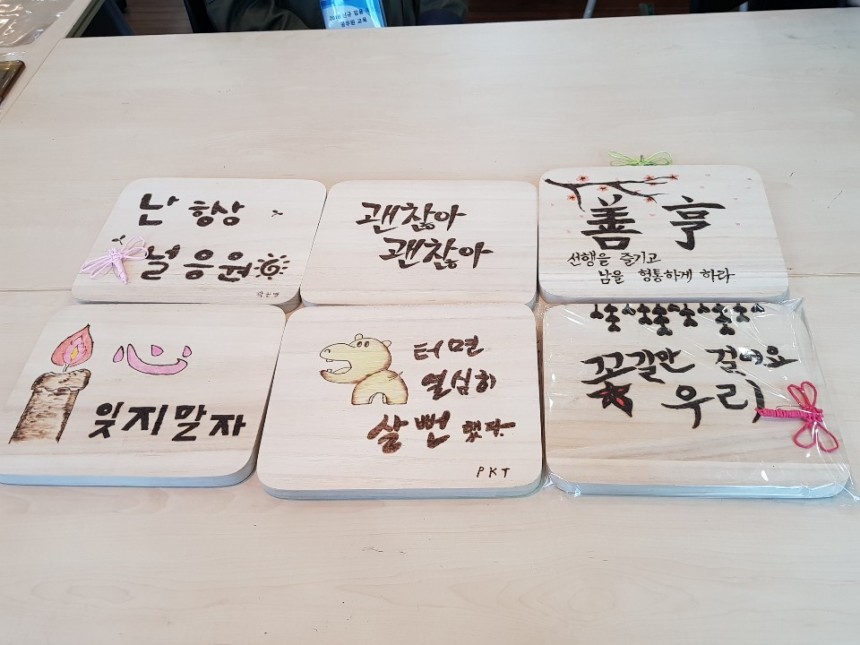 난 항상
널 응원
괜찮아
괜찮아
善亨
선행을 즐기고
남을 형통하게 하라
心
잊지말자
하마터면
열심히
살 뻔 했다
PKT
꽃길만 걸어요
우리
공무원 교육